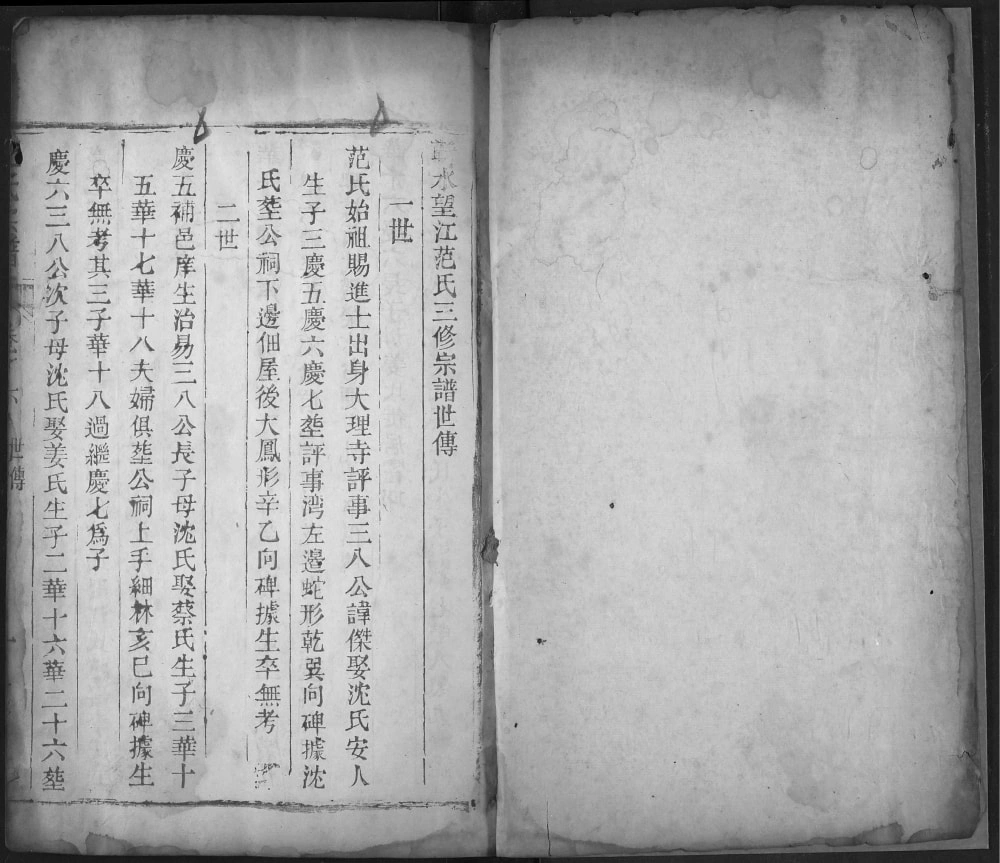 水望江范氏三修宗譜世傳
一世
范氏始祖賜進士出身大理寺評事三八公諱傑娶沈氏安人
生子三慶五慶六慶七塟評事灣左邉蛇形乾巽向碑據沈
氏塟公祠下邊佃屋後大鳳形辛乙向碑據生卒無考
二世
慶五補邑庠生治易三八公長子母沈氏娶蔡氏生子三華十
五華十七華十八夫婦俱塟公祠上手細林亥巳向碑據生
卒無考其三子華十八過繼慶七爲子
慶六三八公次子母沈氏娶姜氏生子二華十六華二十六塟
世傳